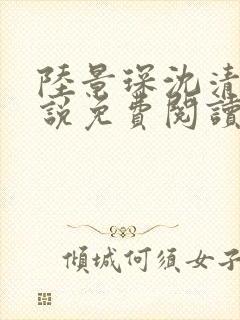 陸景琛沈清
說免費閱讀
傾城何須女子